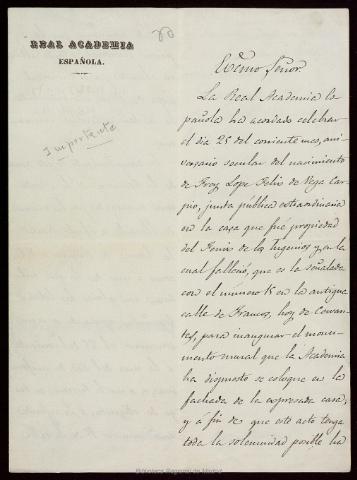 REAL ACADEMIA
ESPAÑOLA.
Importante
Excmo Señor.
La Real Academia Es
pañola ha acordado celebrar
el dia 25 del corriente mes, ani-
versario secular del nacimiento
de Frey Lope Felix de Vega Car-
pio, junta pública extraordinaria
en la casa que fué propiedad
del Fenix de los Ingenios y en la
cual falleció, que es la señalada
con el número 15 en la antigua
calle de Francos, hoy de Cervan-
tes, para inaugurar el monu-
mento mural que la Academia
ha dispuesto se coloque en la
fachada de la expresada casa;
y á fin de que este acto tenga
toda la solemnidad posible ha